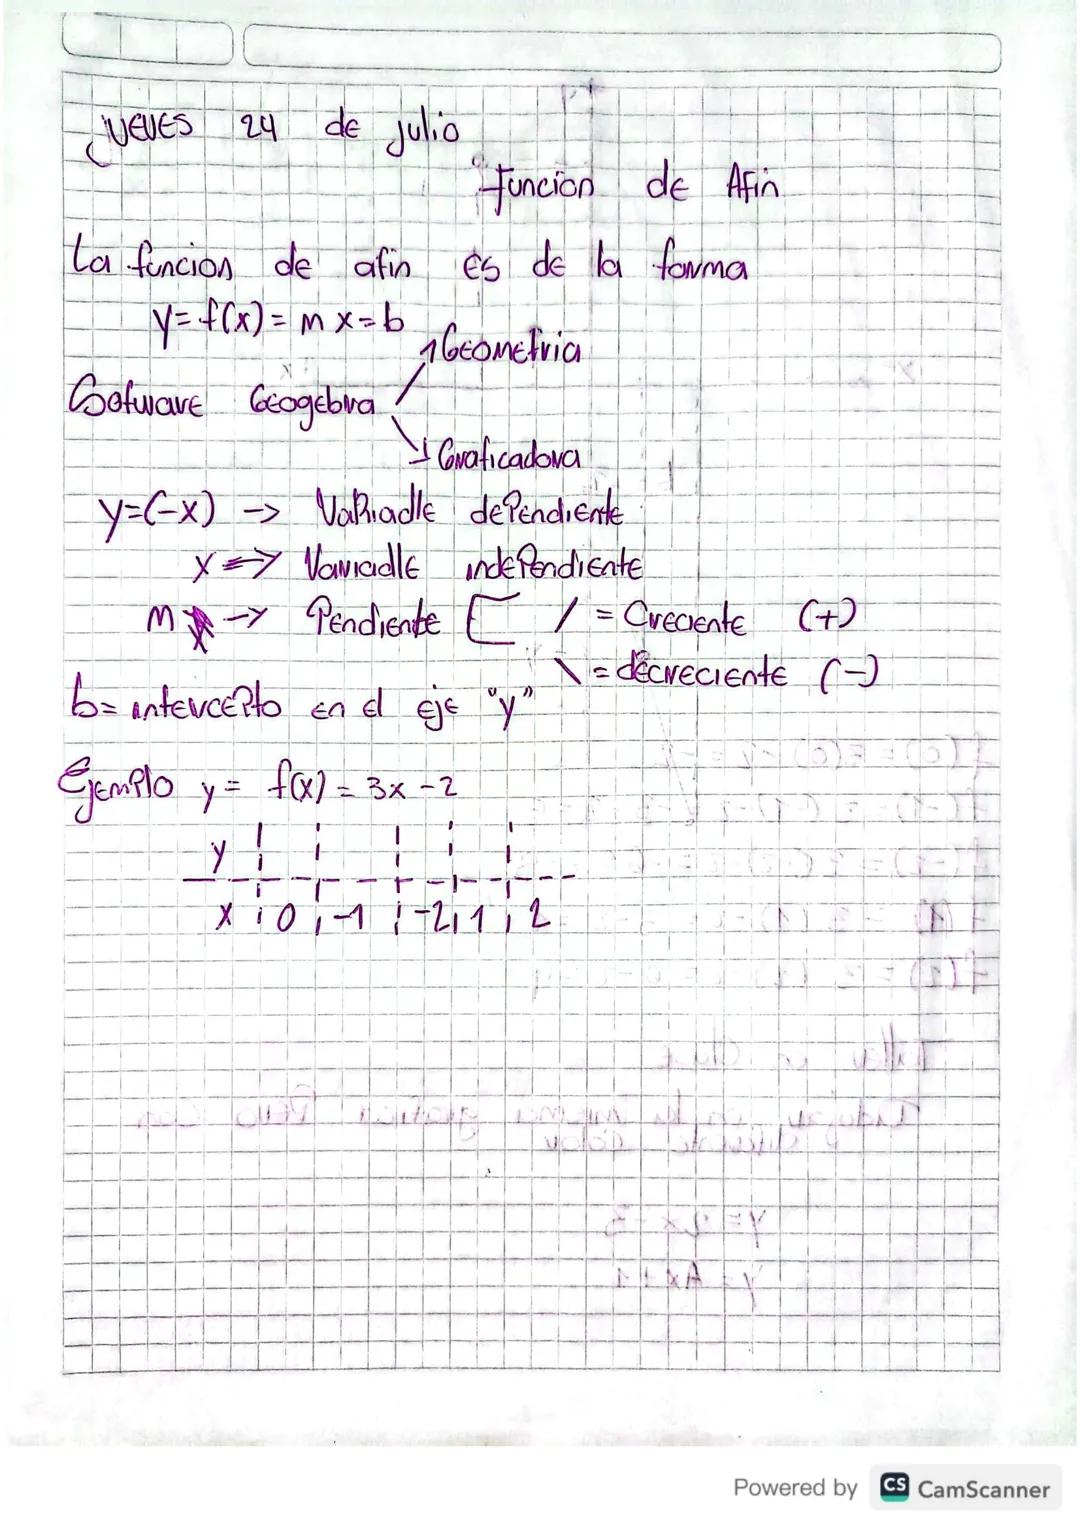 jueves 24 de julio
"funcion de Afin
La funcion de afin es de la forma
y = f(x) = m x = b
Sofware Geogebra
1 Geometria
Graficadora
y=(-x) -> Variadle dependiente
x => Variadle independiente
m -> Pendiente [ / = Creciente (+)
\ = decreciente (-)
b = intercepto en el eje "y"
Ejemplo y = f(x) = 3x - 2
y
x 0 -1 -2 1 2
Powered by CS CamScanner